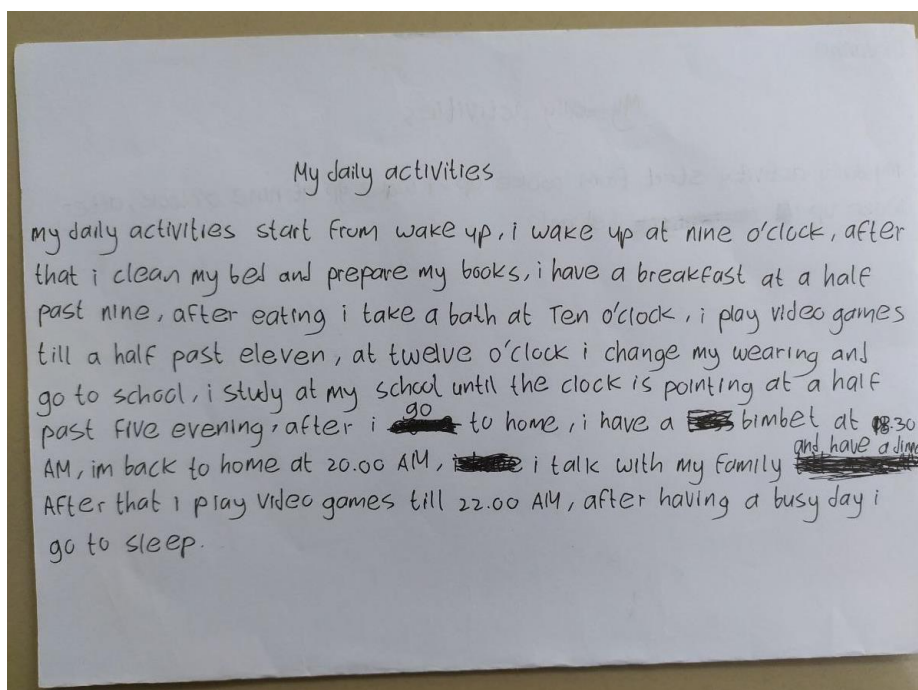 My daily activities
my daily activities start from wake up, i wake up at nine o'clock, after
that i clean my bed and prepare my books, i have a breakfast at a half
past nine, after eating i take a bath at Ten o'clock, i play video games
till a half past eleven, at twelve o'clock i change my wearing and
go to school, i study at my school until the clock is pointing at a half
past five evening, after i go to home, i have a bimbet at 18.30
AM, im back to home at 20.00 AM, i talk with my family and have a
After that i play video games till 22.00 AM, after having a busy day i
go to sleep.